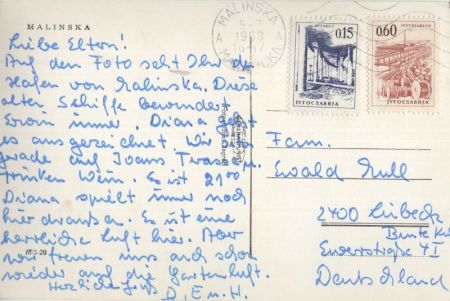 MALINSKA
Liebe Eltern!
Auf dem Foto seht Ihr den
Hafen von Malinska. Diese
alten Schiffe bewundert
Erwin immer. Diana geht
es ausgezeichnet. Wir
grade auf Joans Terasse u.
trinken Wein. Es ist 21°°
Diana spielt immer noch
hier draußen. Es ist eine
herrliche Luft hier. Aber
wir freuen uns auch schon
wieder auf die Gartenluft.
Herzliche Grüße
D, E u. H.
MALINSKA
5-7
1968
JUGOSLAVIJA
0.15
JUGOSLAVIJA
0.60
Fam.
Ewald Krull
2400 Lübeck
Deutschland